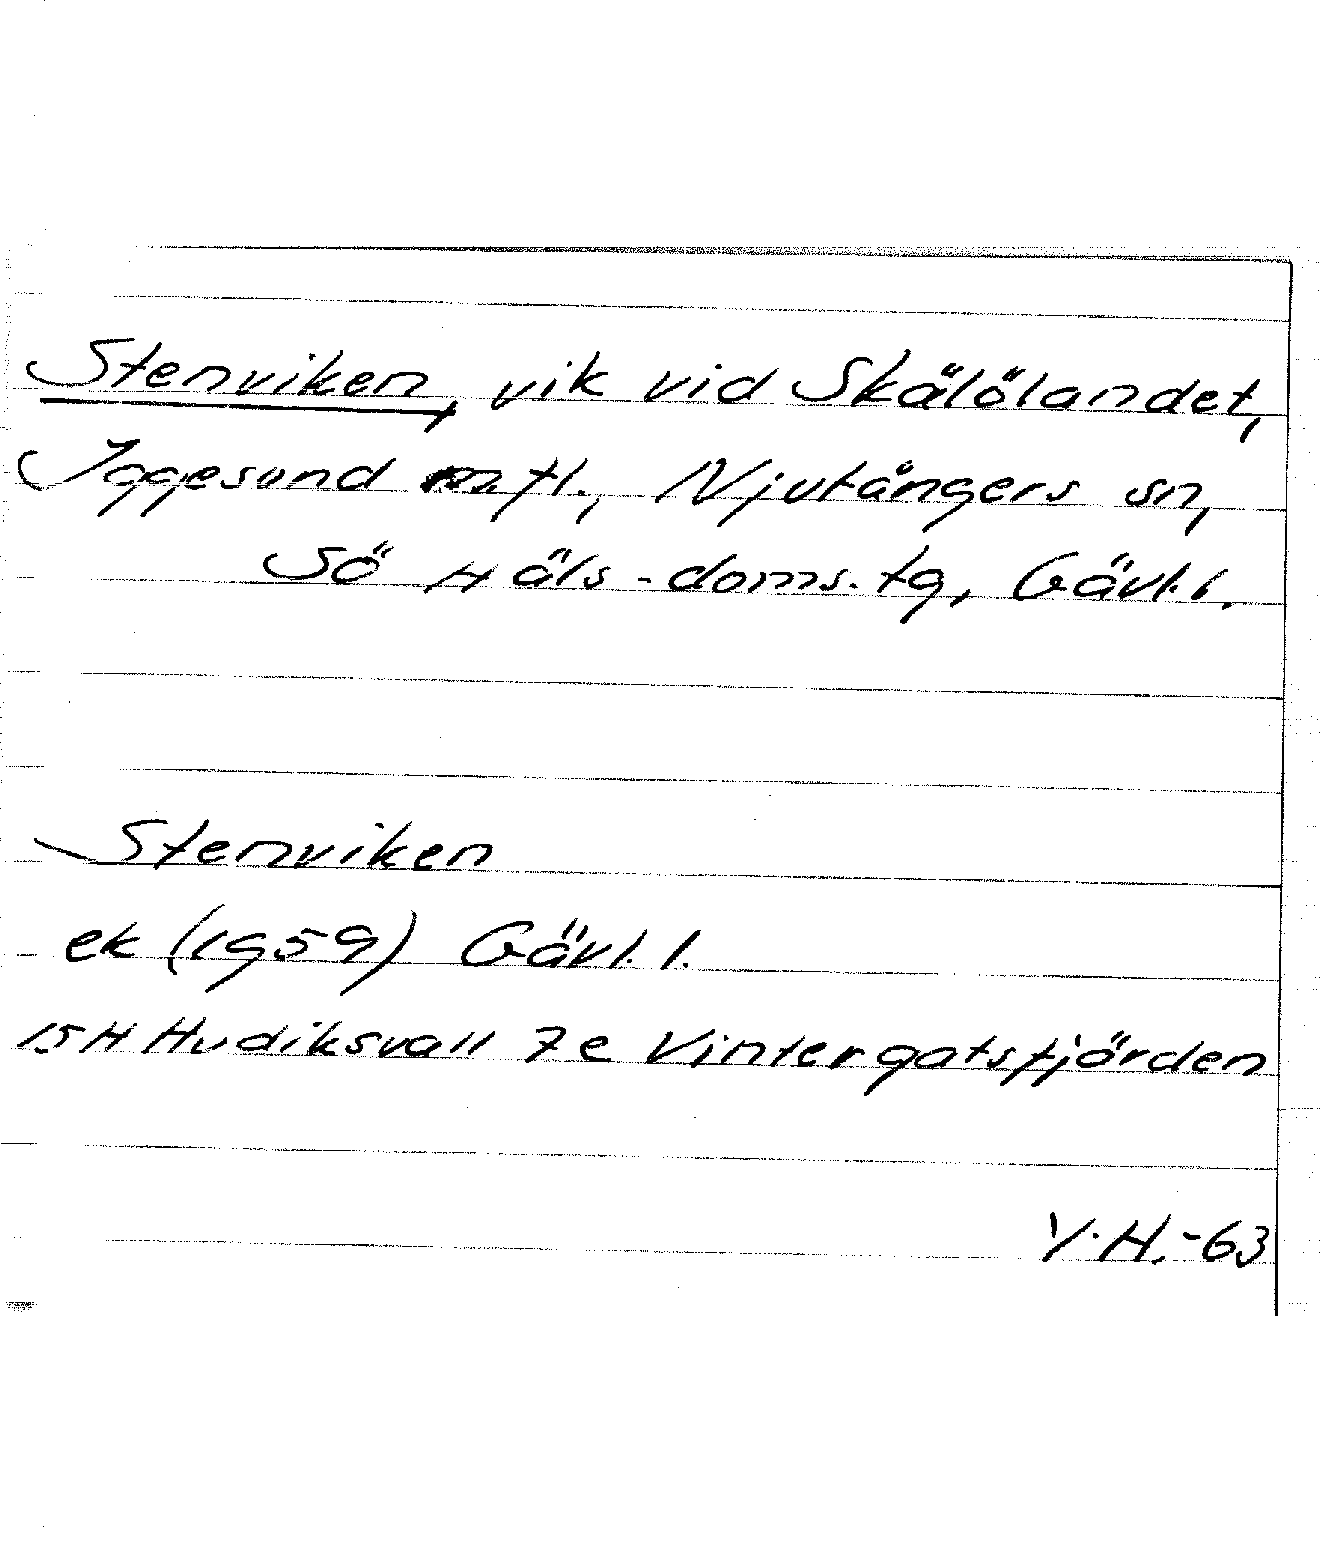 Stenviken, vik vid Skälölandet,
Iggesund m.fl., Njutångers sn,
Sö Häls. doms. tg, Gävl. l.
Stenviken
ek (1959) Gävl. l.
15H Hudiksvall 7e Vintergatsfjärden
Y.H.-63